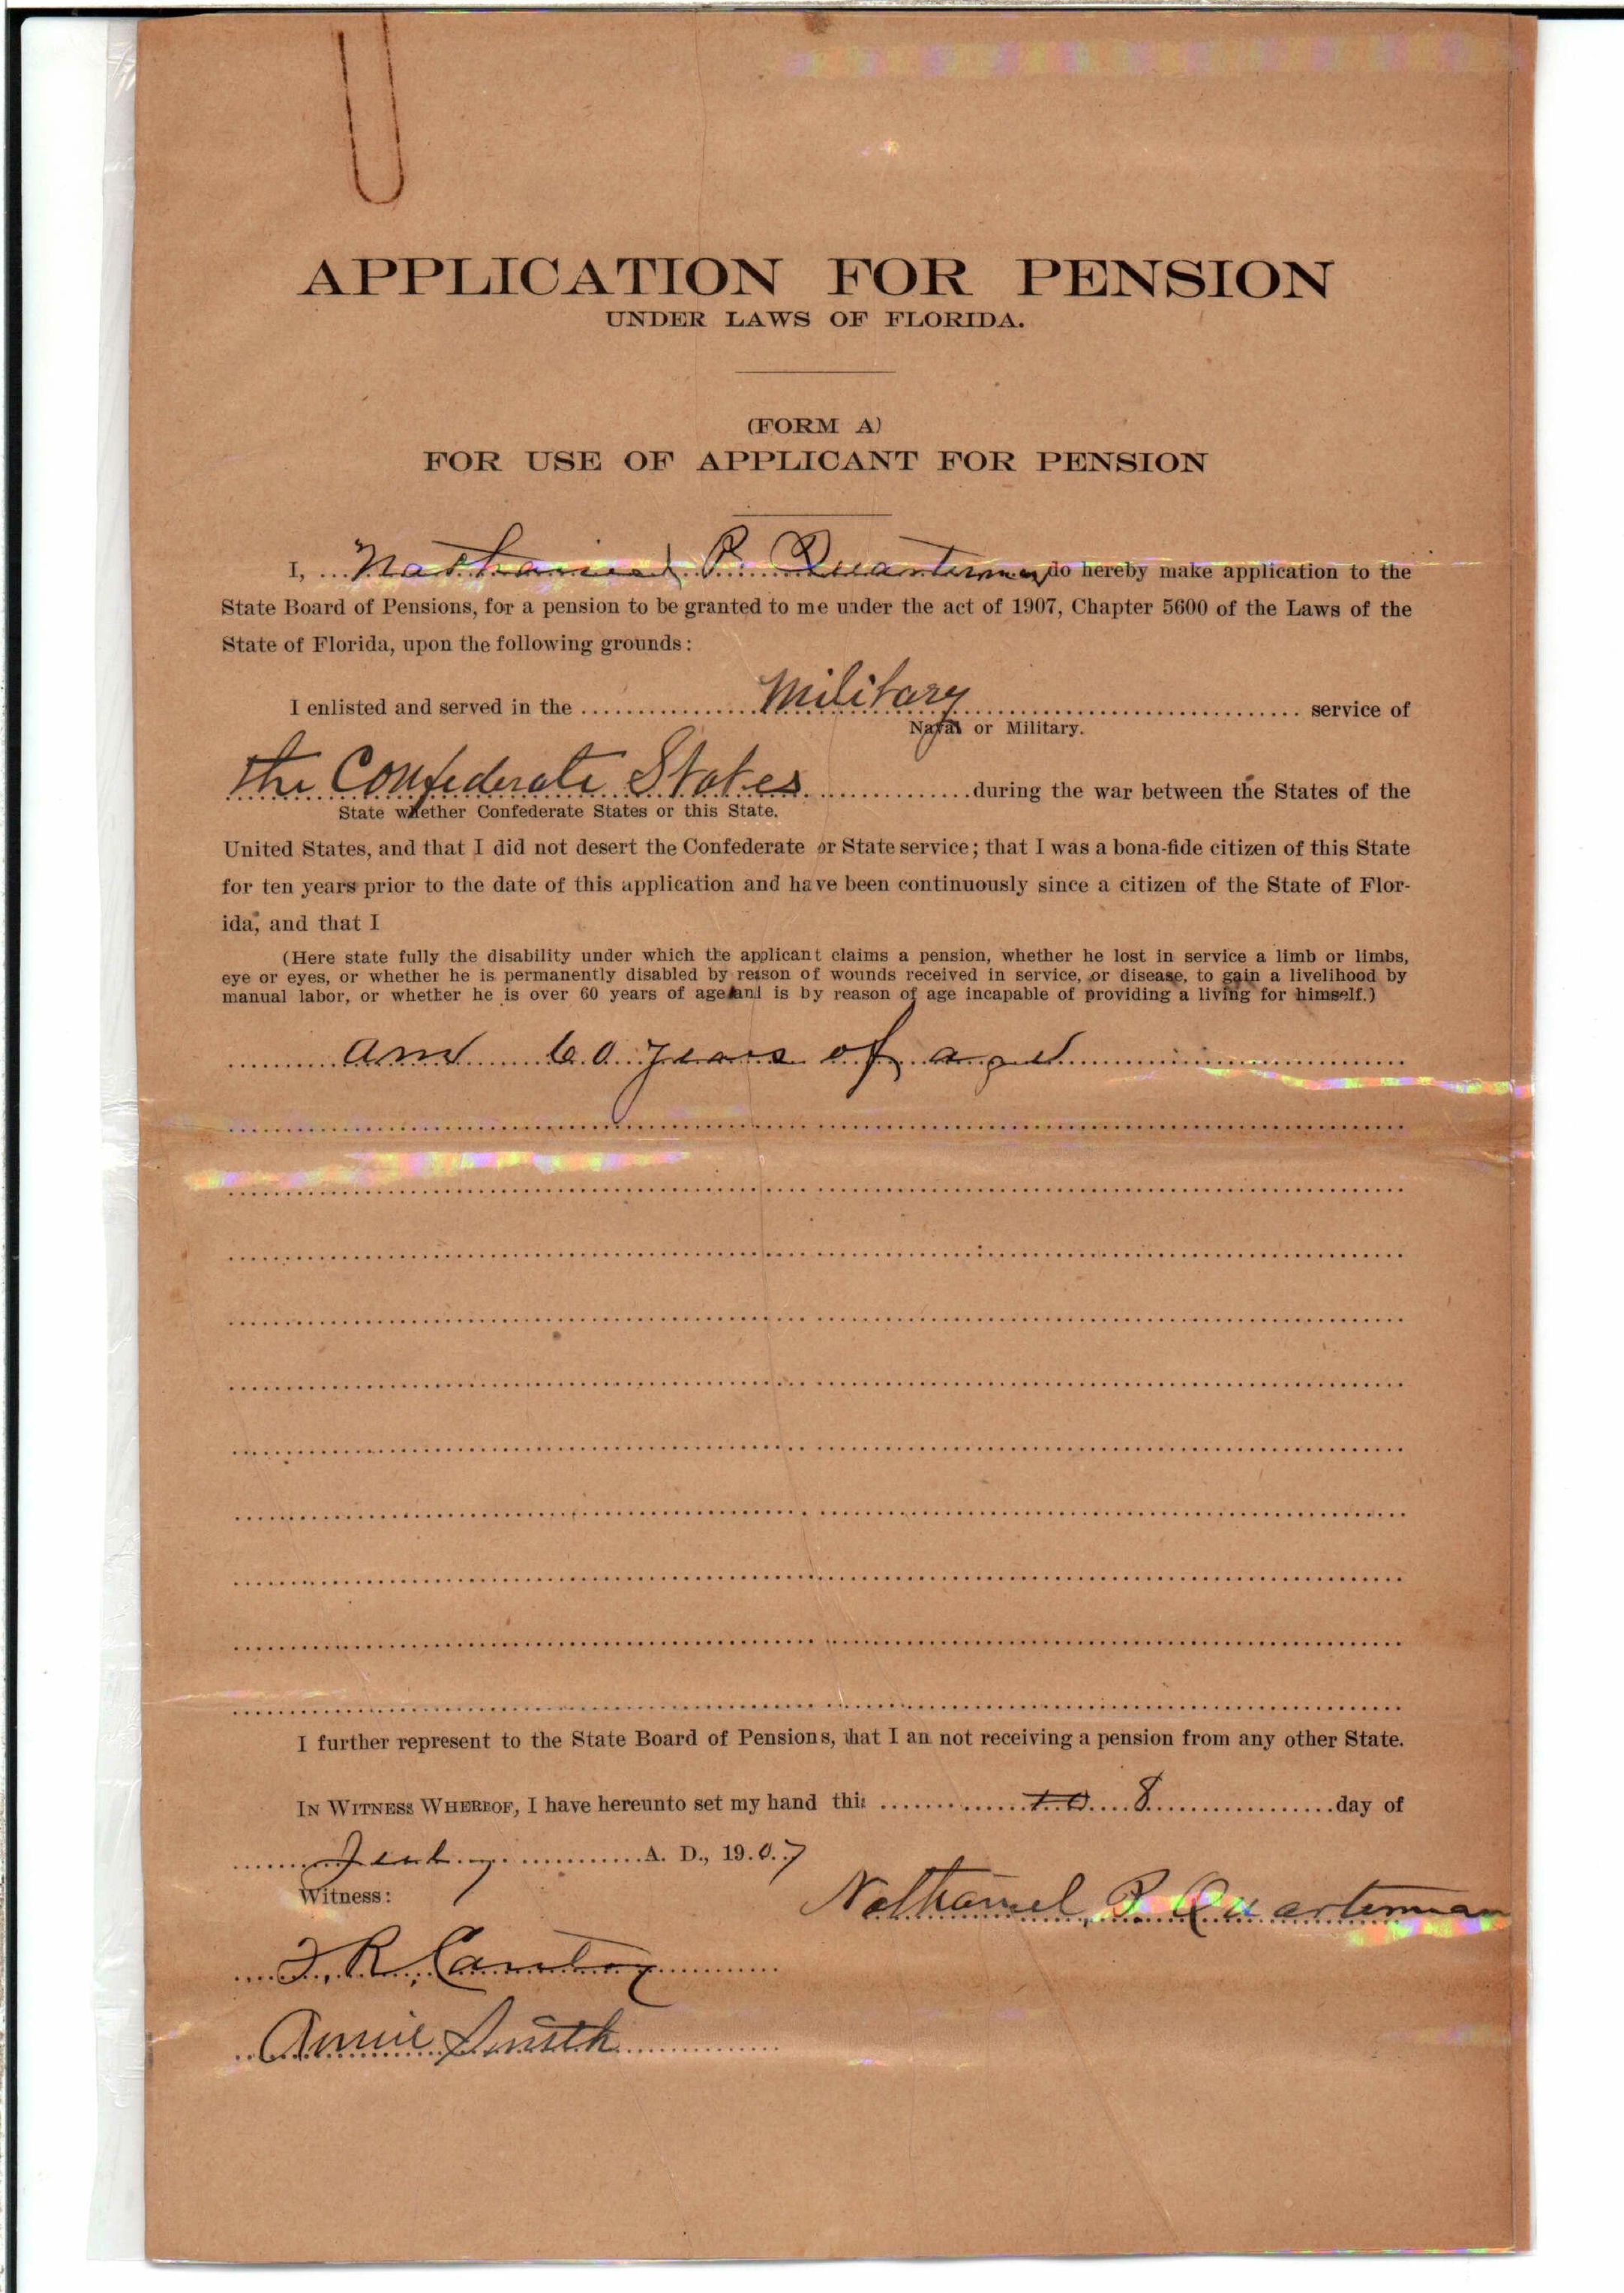 APPLICATION FOR PENSION
UNDER LAWS OF FLORIDA.
(FORM A)
FOR USE OF APPLICANT FOR PENSION
I, Nathaniel P. Quarterman do hereby make application to the
State Board of Pensions, for a pension to be granted to me under the act of 1907, Chapter 5600 of the Laws of the
State of Florida, upon the following grounds:
I enlisted and served in the Military service of
Naval or Military.
the Confederate States during the war between the States of the
State whether Confederate States or this State.
United States, and that I did not desert the Confederate or State service; that I was a bona-fide citizen of this State
for ten years prior to the date of this application and have been continuously since a citizen of the State of Flor-
ida, and that I
(Here state fully the disability under which the applicant claims a pension, whether he lost in service a limb or limbs,
eye or eyes, or whether he is permanently disabled by reason of wounds received in service, or disease, to gain a livelihood by
manual labor, or whether he is over 60 years of age and is by reason of age incapable of providing a living for himself.)
am 60 years of age
I further represent to the State Board of Pensions, that I am not receiving a pension from any other State.
IN WITNESS WHEREOF, I have hereunto set my hand this 8 day of
July A. D., 1907
Witness:
Nathaniel P. Quarterman
R.
Annie Smith